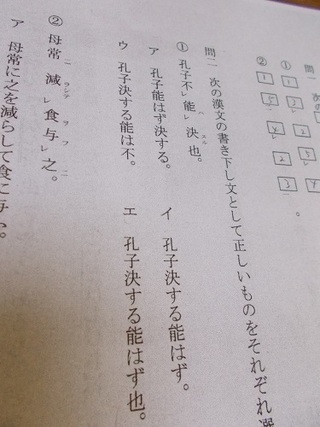 問一 次の漢
①
1
レ
②
1
レ
2
3
。
問二 次の漢文の書き下し文として正しいものをそれぞれ選
① 孔子不レ能レ決也。
ハ スル
ア 孔子能はず決する。
イ 孔子決する能はず。
ウ 孔子決する能は不。
エ 孔子決する能はず也。
② 母常ニ減ラシテレ食与フレ之ニ。
ア 母常に之を減らして食に与ふ。